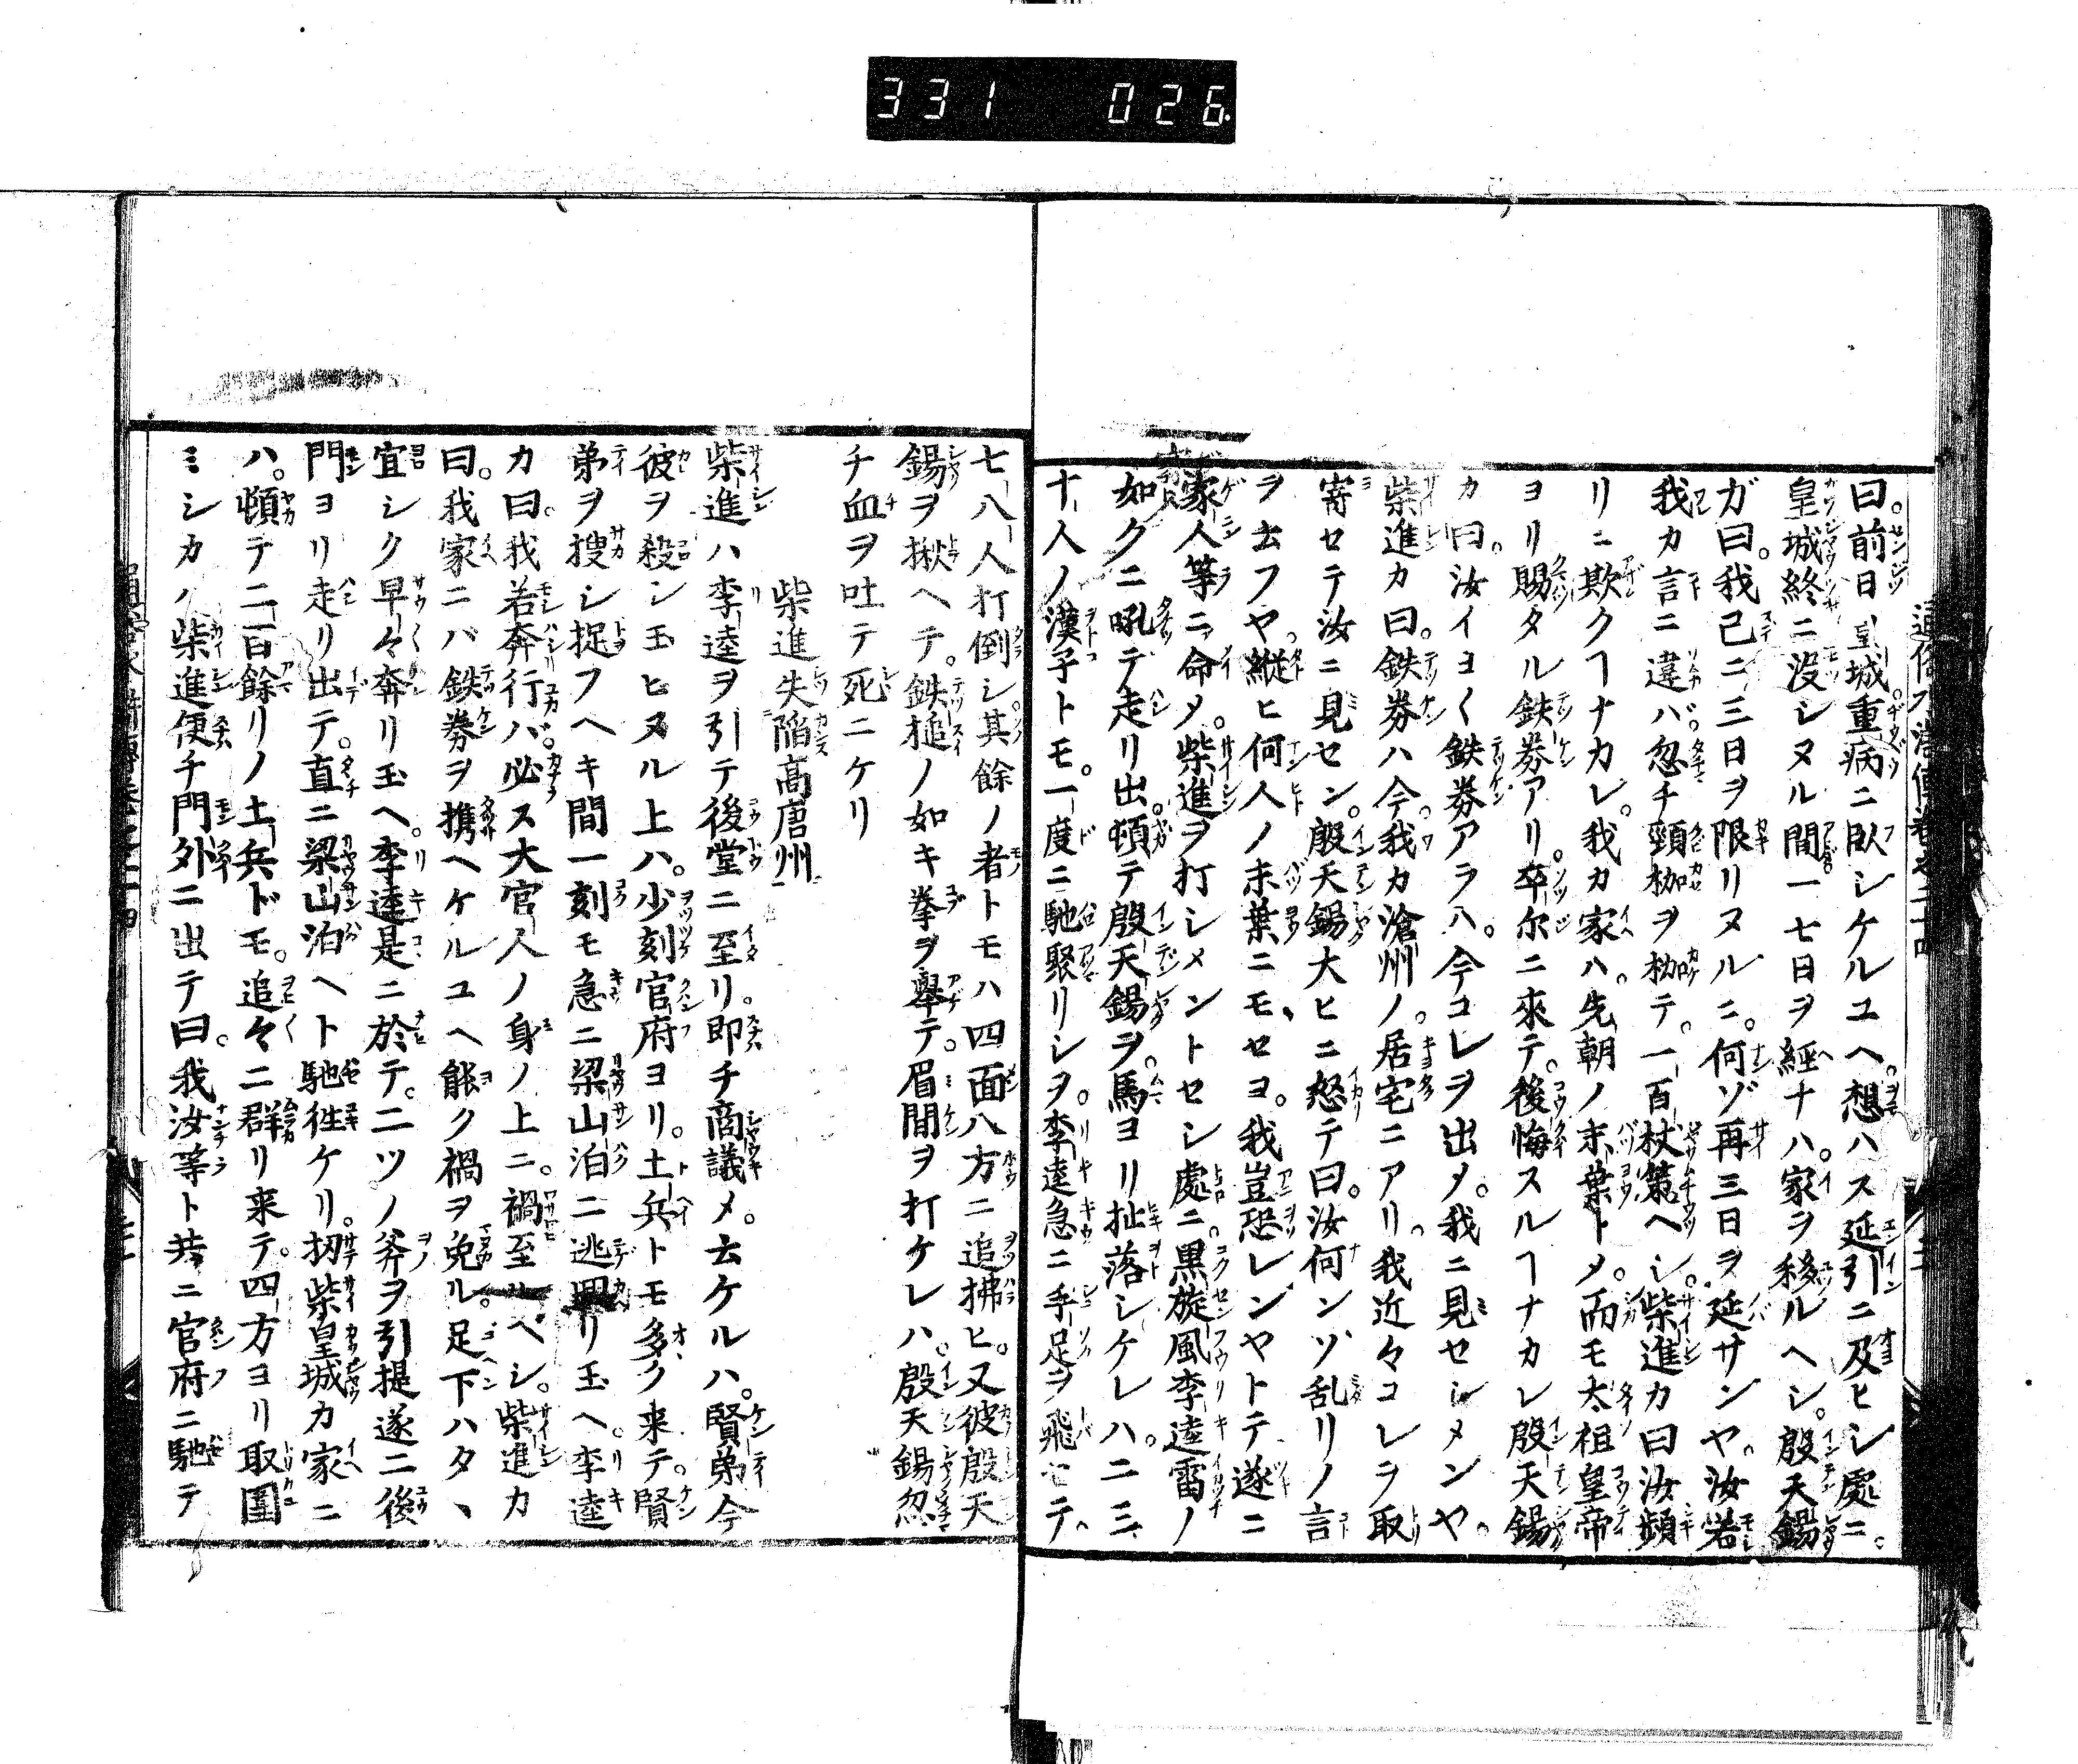 331 026
曰。前日皇城重病ニ臥シケルユヘ。想ハス延引ニ及ヒシ處ニ。
皇城終ニ没シヌル間一七日ヲ經ナハ。家ヲ移ルヘシ。殷天錫
ガ曰。我已ニ三日ヲ限リヌルニ。何ゾ再三日ヲ延サンヤ。汝若
我カ言ニ違ハ゛。忽チ頸枷ヲ枷テ。一百杖策ヘシ。柴進カ曰汝頻
リニ欺クヿナカレ。我カ家ハ。先朝ノ末葉トメ。而モ太祖皇帝
ヨリ賜タル鉄券アリ。卒尔ニ來テ。後悔スルヿナカレ殷天錫
カ曰。汝イヨ〱鉄券アラハ。今コレヲ出メ。我ニ見セシメンヤ。
柴進カ曰。鉄券ハ今。我カ滄州ノ。居宅ニアリ。我近々コレヲ取
寄セテ汝ニ見セン。殷天錫大ヒニ怒テ曰。汝何ンゾ乱リノ言
ヲ云フヤ。縦ヒ何人ノ末葉ニモセヨ。我豈恐レンヤトテ遂ニ
家人等ニ命メ。柴進ヲ打シメントセシ處ニ。黒旋風李逵雷ノ
如クニ吼テ走リ出。頓テ殷天錫ヲ。馬ヨリ扯落シケレハ。二三
十人ノ漢子トモ。一度ニ馳聚リシヲ。李逵急ニ手足ヲ飛セテ。
七八人打倒シ。其餘ノ者トモハ四面八方ニ追拂ヒ。又彼殷天
錫ヲ揪ヘテ。鉄搥ノ如キ拳ヲ舉テ。眉間ヲ打ケレハ。殷天錫忽
チ血ヲ吐テ死ニケリ
柴進失陥高唐州
柴進ハ李逵ヲ引テ後堂ニ至リ。即チ商議メ。云ケルハ。賢弟今
彼ヲ殺シ玉ヒヌル上ハ。少刻官府ヨリ。土兵トモ多ク来テ。賢
弟ヲ搜シ捉フヘキ間一刻モ急ニ梁山泊ニ逃皈リ玉ヘ。李逵
カ曰。我若奔行バ。必ス大官人ノ身ノ上ニ。禍至ルヘシ。柴進カ
曰。我家ニバ鉄券ヲ携ヘケルユヘ能ク禍ヲ免ル。足下ハタヽ
宜シク早々奔リ玉ヘ。李逵是ニ於テ。二ツノ斧ヲ引提遂ニ後
門ヨリ走リ出テ。直ニ梁山泊ヘト馳徃ケリ。扨柴皇城カ家ニ
ハ。頓テ二百餘リノ土兵ドモ。追々ニ群リ来テ。四方ヨリ取圍
ミシカハ柴進便チ門外ニ出テ曰。我汝等ト共ニ官府ニ馳テ